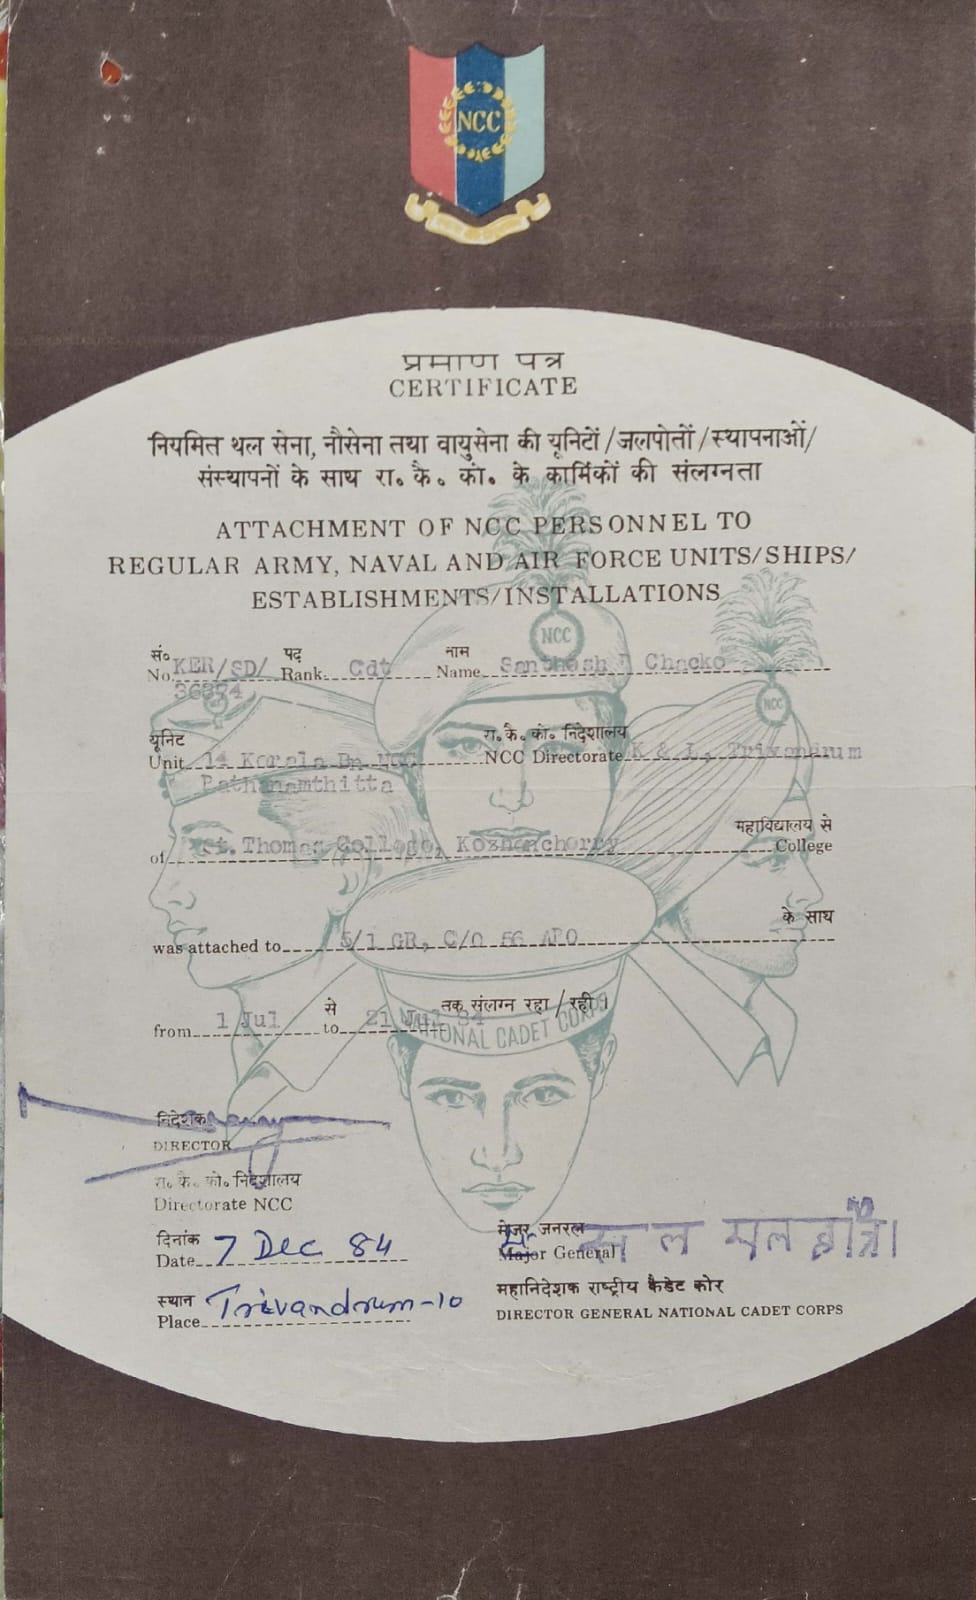 NCC
प्रमाण पत्र
CERTIFICATE
नियमित थल सेना, नौसेना तथा वायुसेना की यूनिटों/जलपोतों/स्थापनाओं/
संस्थापनों के साथ रा॰ कै॰ कां॰ के कार्मिकों की संलग्नता
ATTACHMENT OF NCC PERSONNEL TO
REGULAR ARMY, NAVAL AND AIR FORCE UNITS/SHIPS/
ESTABLISHMENTS/INSTALLATIONS
NCC
सं॰ पद नाम
No. KER/SD/ Rank Cdt Name Santhosh Chacko
NCC
यूनिट रा. कै. को. निदेशालय
Unit 14 Kerala Bn NCC NCC Directorate K & L, Trivandrum
Pathanamthitta
महाविद्यालय से
of St. Thomas College, Kozhencherry College
के साथ
was attached to 5/1 GR, C/O 56 APO
से तक संलग्न रहा/रही।
from 1 Jul to 21 Jul 84
NATIONAL CADET CORPS
निदेशक
DIRECTOR
रा. कै. को. निदेशालय
Directorate NCC
दिनांक
Date 7 Dec 84
मेजर जनरल
Major General
स्थान
Place Trivandrum-10
महानिदेशक राष्ट्रीय कैडेट कोर
DIRECTOR GENERAL NATIONAL CADET CORPS